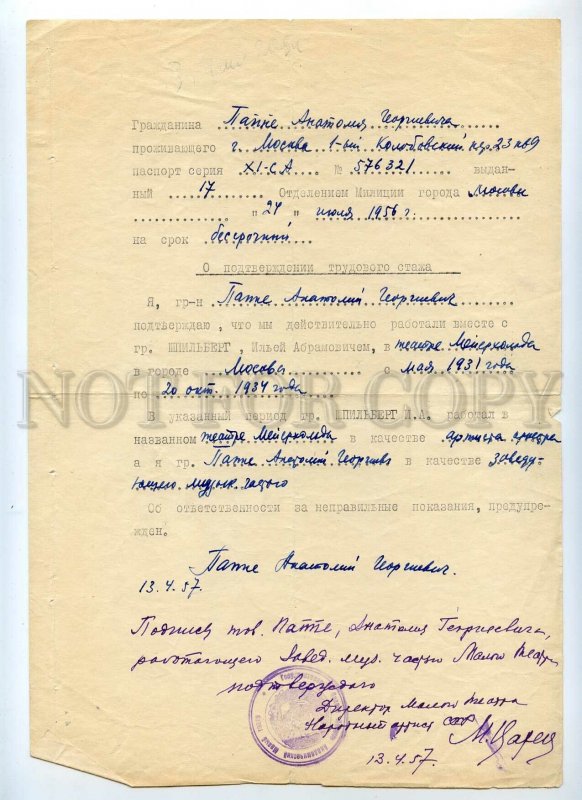 Гражданина Паппе Анатолия Георгиевича
проживающего г. Москва 1-ый Колобовский пер. 23 кв 9
паспорт серия XI-СА № 576321 выдан-
ный 17 Отделением Милиции города Москвы
"24" июля 1956 г.
на срок бессрочный
О подтверждении трудового стажа
Я, гр-н Паппе Анатолий Георгиевич
подтверждаю, что мы действительно работали вместе с
гр. ШПИЛЬБЕРГ, Ильей Абрамовичем, в театре Мейерхольда
в городе Москва с мая 1931 года
по 20 окт. 1934 года
NOT FOR COPY
В указанный период гр. ШПИЛЬБЕРГ И.А. работал в
названном театре Мейерхольда в качестве артиста оркестра
а я гр. Паппе Анатолий Георгиевич в качестве заведу-
ющего музык. частью
Об ответственности за неправильные показания, предупре-
жден.
Паппе Анатолий Георгиевич.
13.4.57.
Подпись тов. Паппе, Анатолия Георгиевича,
работающего Завед. муз. частью Малого Театра
подтверждаю
Директор Малого театра
Народный артист СССР
М. Царев
13.4.57.